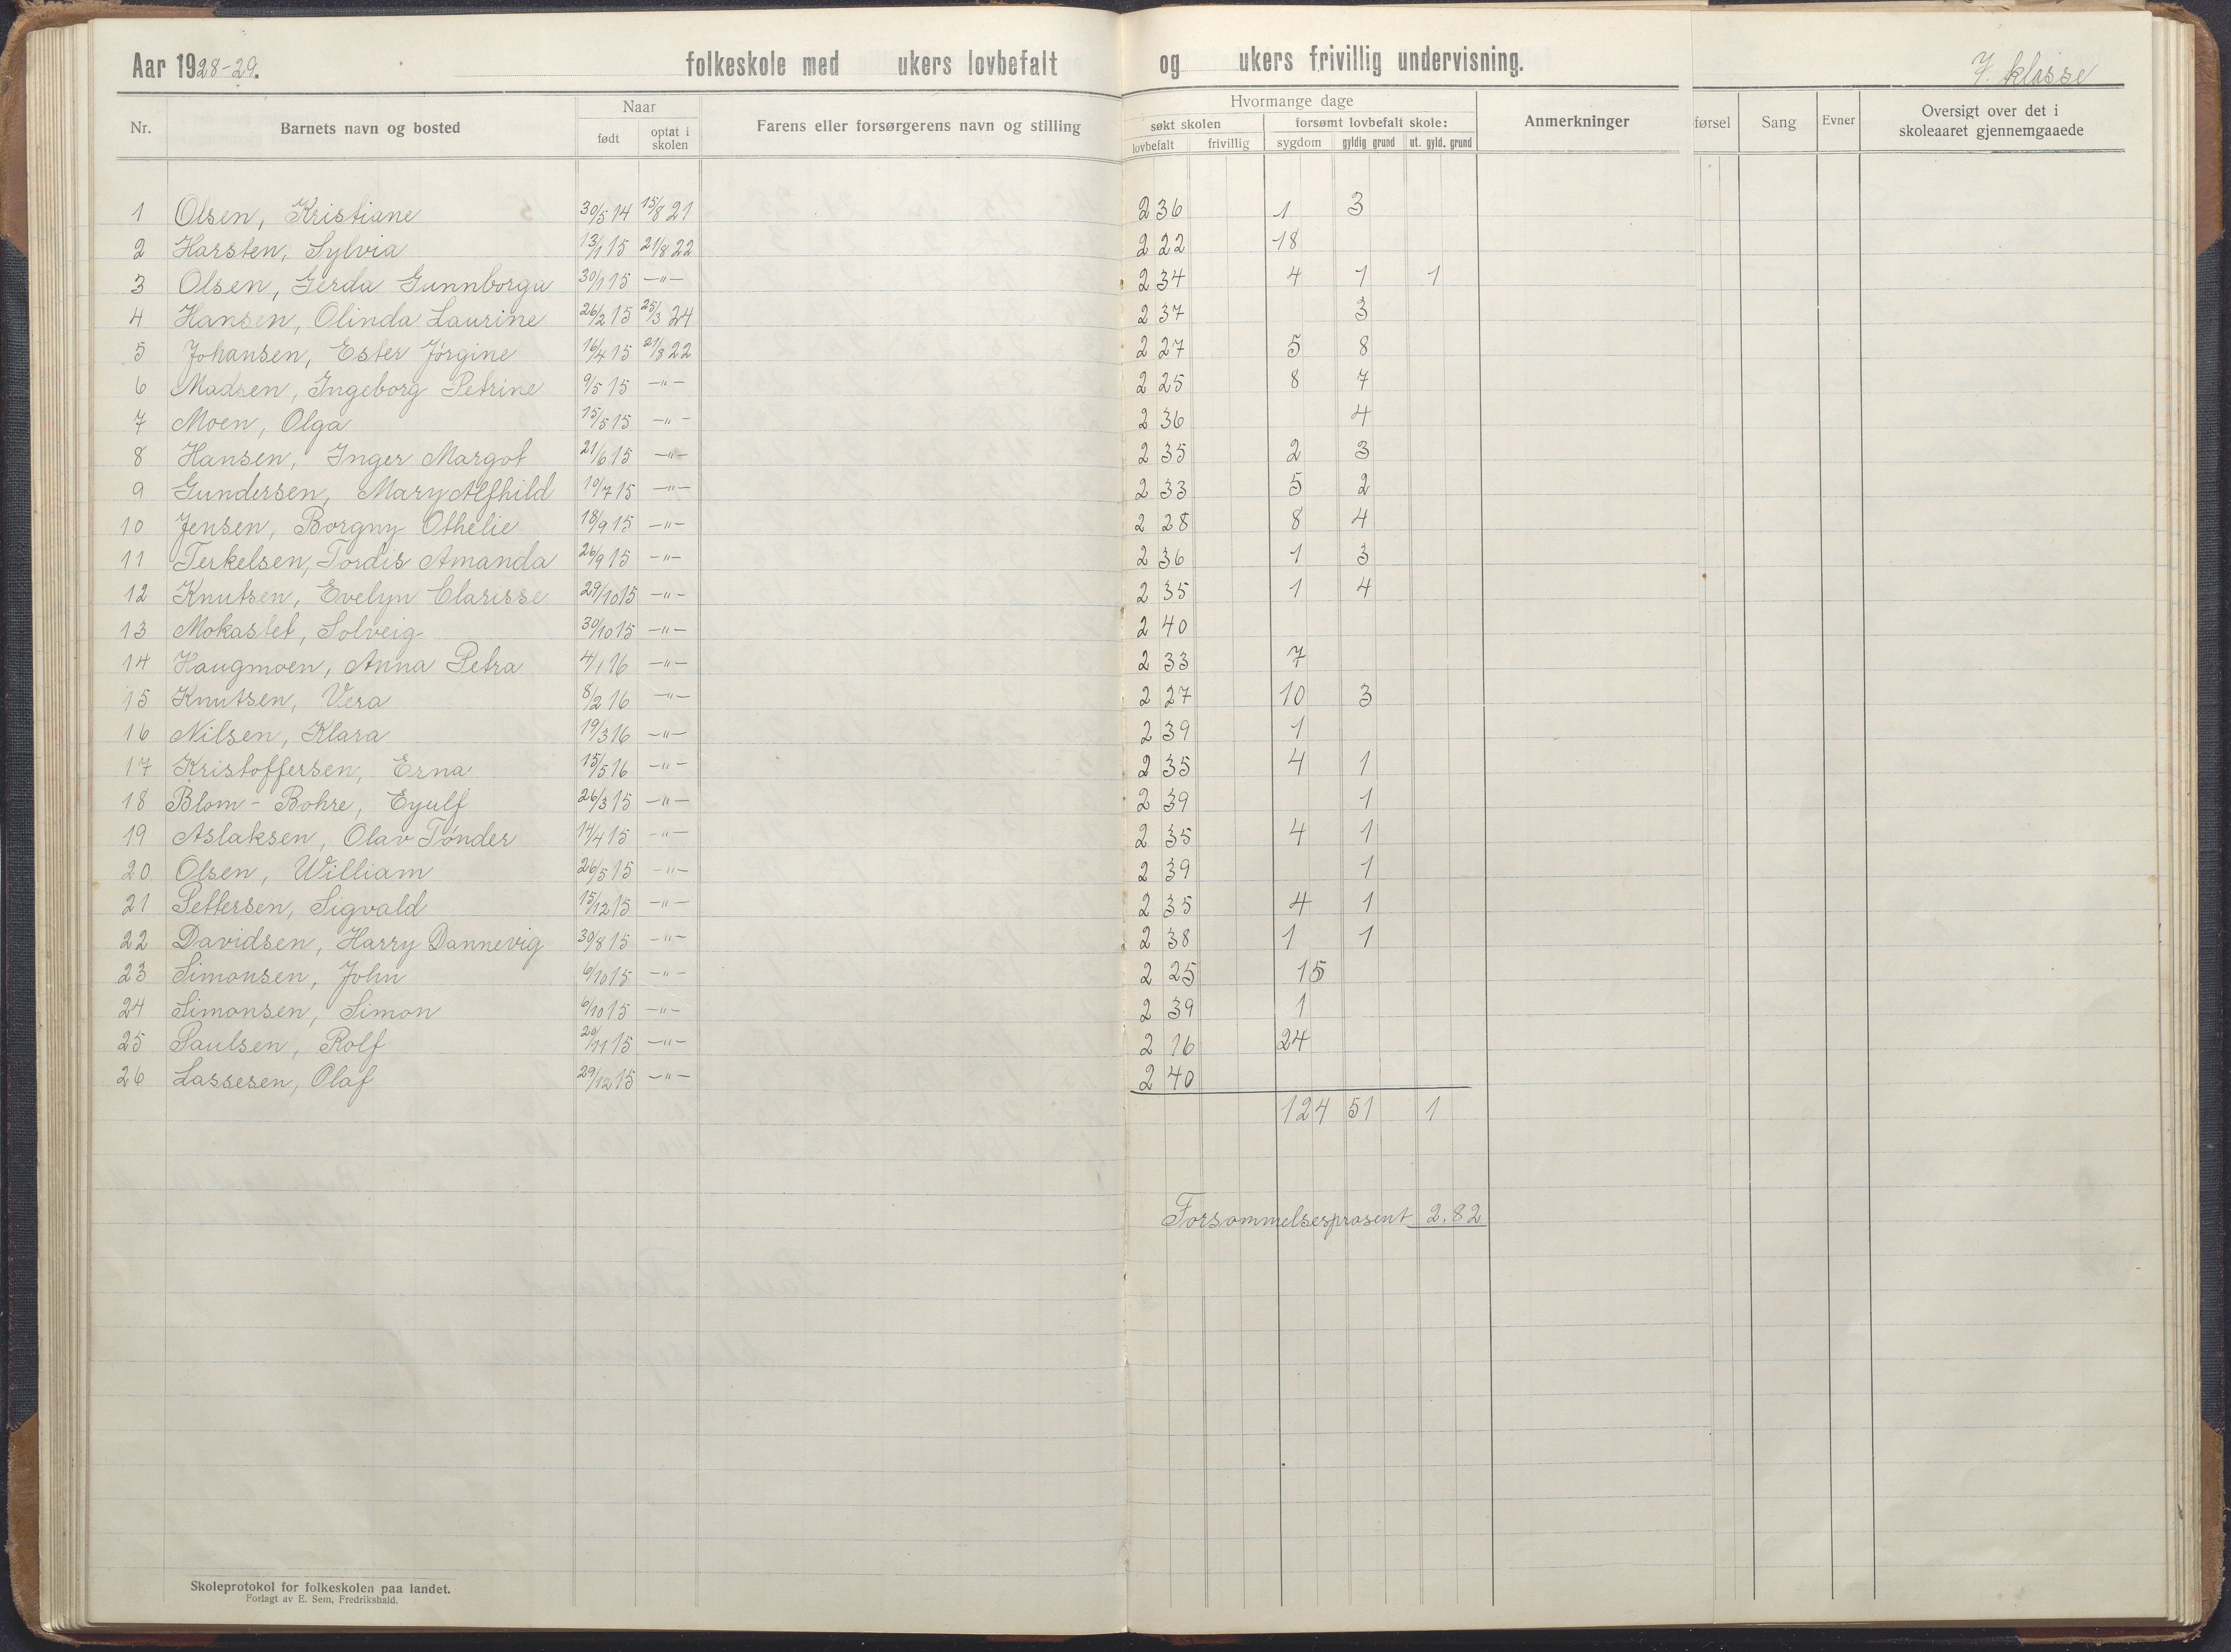 Aar 1928-29. folkeskole med ukers lovbefalt og ukers frivillig undervisning. 7. klasse
Nr. Barnets navn og bosted Naar født optat i skolen Farens eller forsørgerens navn og stilling Hvormange dage søkt skolen lovbefalt frivillig forsømt lovbefalt skole: sygdom gyldig grund ut. gyld. grund Anmerkninger førsel Sang Evner Oversigt over det i skoleaaret gjennemgaaede
1 Olsen, Kristiane 30/5 14 15/8 21 236 1 3
2 Harsten, Sylvia 13/1 15 21/8 22 222 18
3 Olsen, Gerda Gunnborga 30/1 15 —"— 234 4 1 1
4 Hansen, Olinda Laurine 26/2 15 25/3 24 237 3
5 Johansen, Ester Jørgine 16/4 15 21/8 22 227 5 8
6 Madsen, Ingeborg Petrine 9/5 15 —"— 225 8 7
7 Moen, Olga 15/5 15 —"— 236 4
8 Hansen, Inger Margot 21/6 15 —"— 235 2 3
9 Gundersen, Mary Alfhild 10/7 15 —"— 233 5 2
10 Jensen, Borgny Othelie 18/9 15 —"— 228 8 4
11 Terkelsen, Tordis Amanda 26/9 15 —"— 236 1 3
12 Knutsen, Evelyn Clarisse 29/10 15 —"— 235 1 4
13 Mokastet, Solveig 30/10 15 —"— 240
14 Haugmoen, Anna Petra 4/1 16 —"— 233 7
15 Knutsen, Vera 8/2 16 —"— 227 10 3
16 Nilsen, Klara 19/3 16 —"— 239 1
17 Kristoffersen, Erna 15/5 16 —"— 235 4 1
18 Blom-Bohre, Eyulf 26/3 15 —"— 239 1
19 Aslaksen, Olav Tønder 14/4 15 —"— 235 4 1
20 Olsen, William 26/5 15 —"— 239 1
21 Pettersen, Sigvald 15/12 15 —"— 235 4 1
22 Davidsen, Harry Dannevig 30/8 15 —"— 238 1 1
23 Simonsen, John 6/10 15 —"— 225 15
24 Simonsen, Simon 6/10 15 —"— 239 1
25 Paulsen, Rolf 20/11 15 —"— 216 24
26 Lassesen, Olaf 29/12 15 —"— 240
124 51 1
Forsømmelsesprosent 2.82
Skoleprotokol for folkeskolen paa landet.
Forlagt av E. Sem, Fredrikshald.